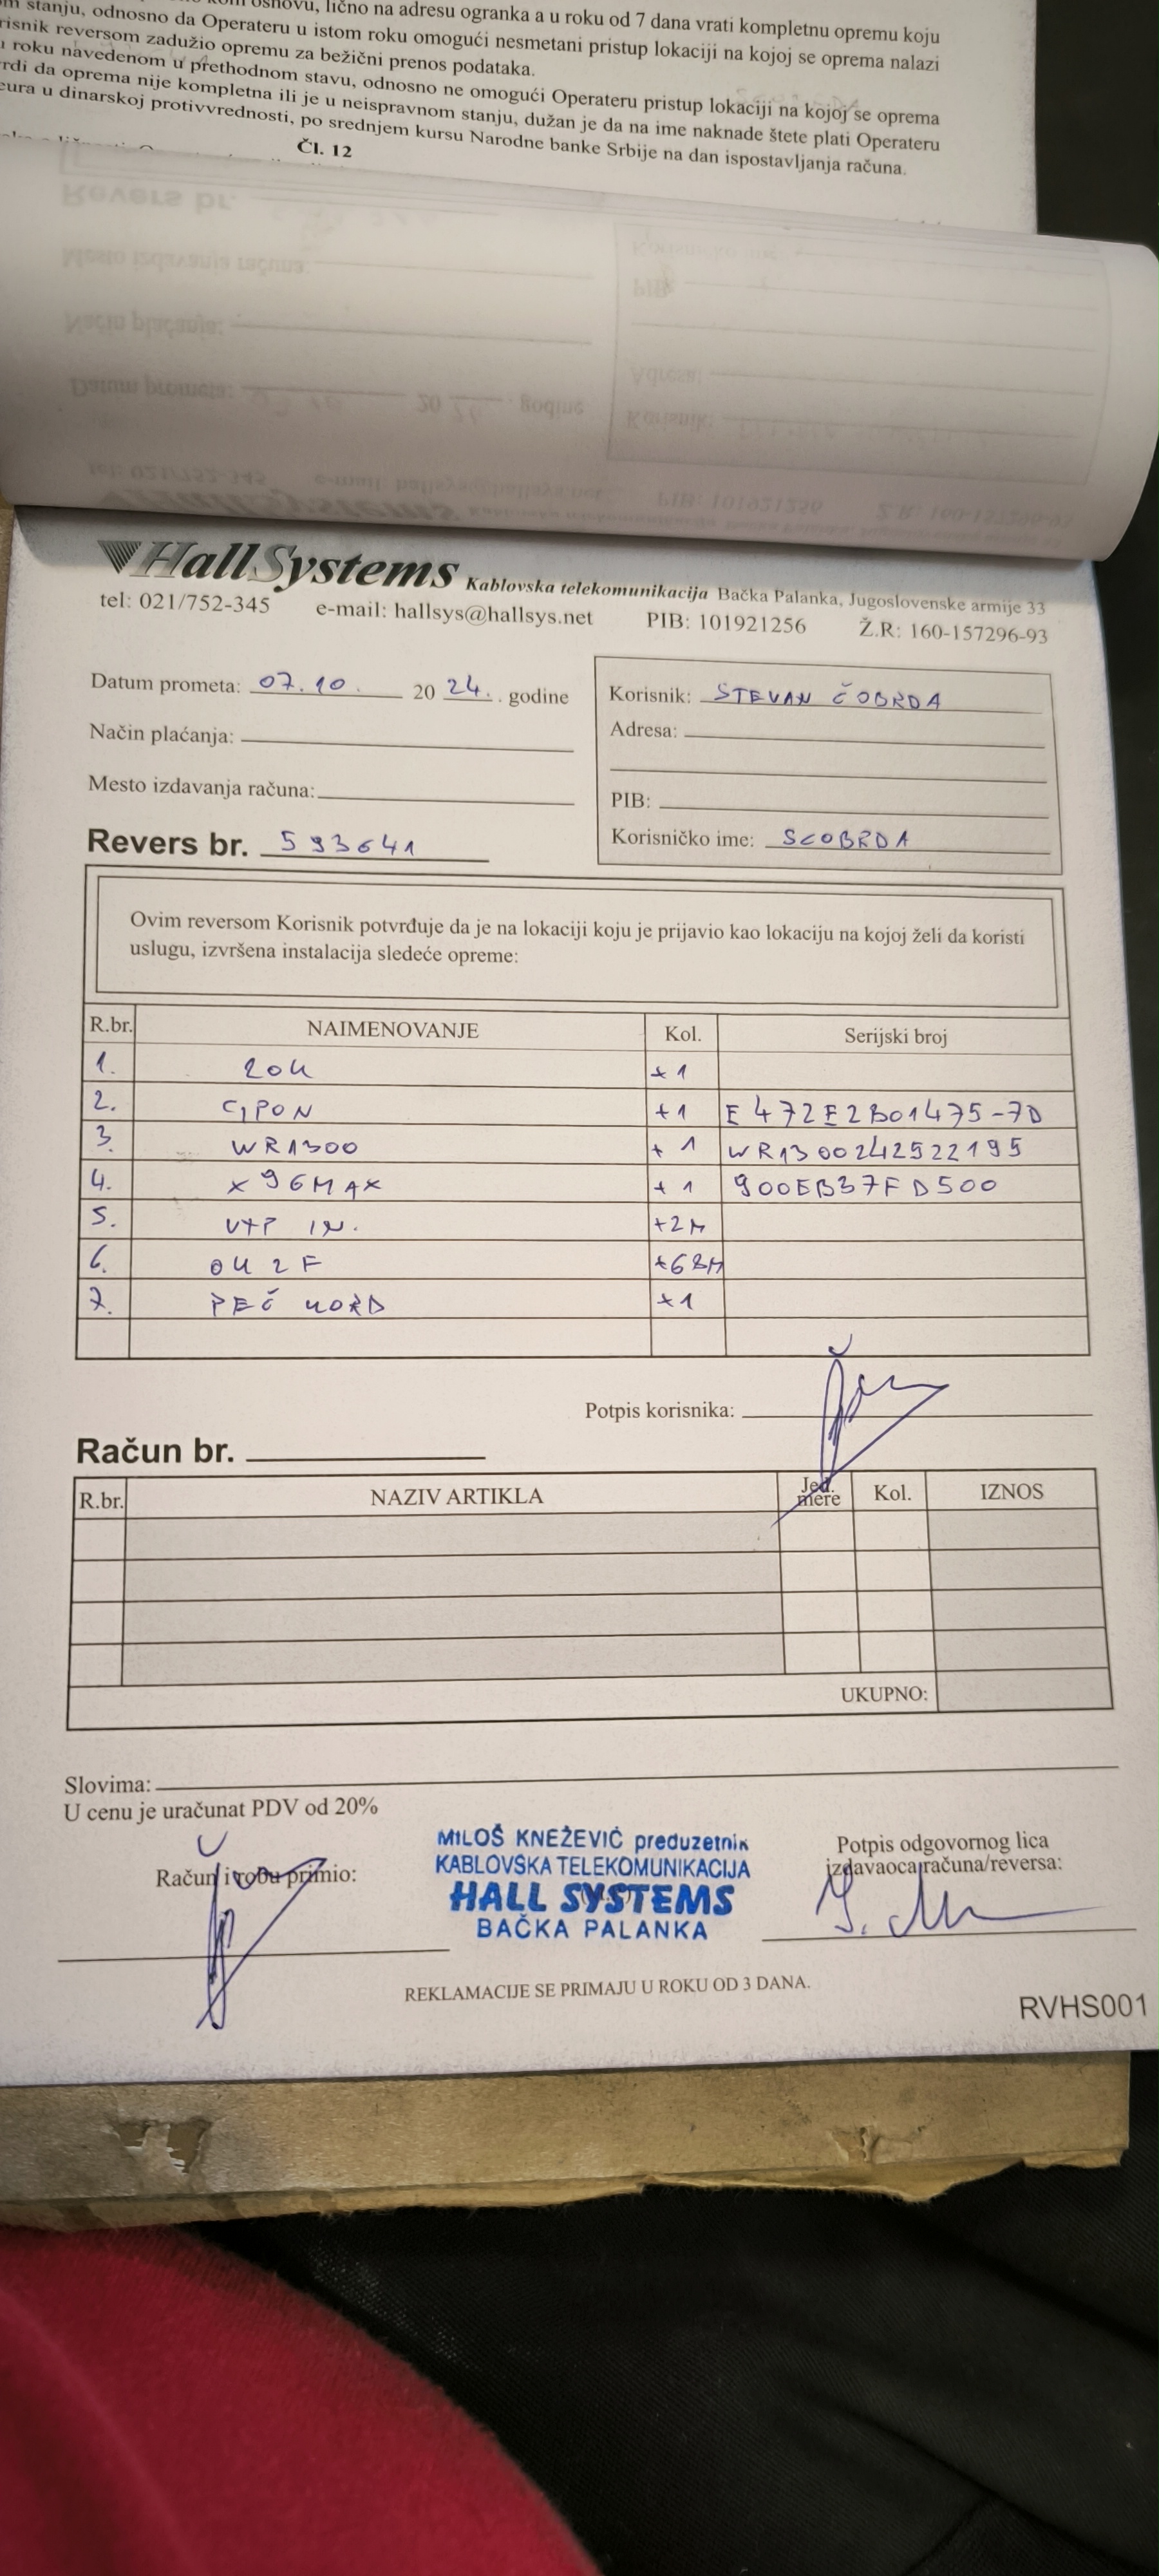 stanju, odnosno da Operateru u istom roku omogući nesmetani pristup lokaciji na kojoj se oprema nalazi
osnovu, lično na adresu ogranka a u roku od 7 dana vrati kompletnu opremu koju
reversom zadužio opremu za bežični prenos podataka.
roku navedenom u prethodnom stavu, odnosno ne omogući Operateru pristup lokaciji na kojoj se oprema
da oprema nije kompletna ili je u neispravnom stanju, dužan je da na ime naknade štete plati Operateru
u dinarskoj protivvrednosti, po srednjem kursu Narodne banke Srbije na dan ispostavljanja računa.
Čl. 12
HallSystems Kablovska telekomunikacija Bačka Palanka, Jugoslovenske armije 33
tel: 021/752-345 e-mail: hallsys@hallsys.net PIB: 101921256 Ž.R: 160-157296-93
Datum prometa: 07.10. 2024. godine
Način plaćanja:
Mesto izdavanja računa:
Revers br. 593641
Korisnik: STEVAN ČOBRDA
Adresa:
PIB:
Korisničko ime: SCOBRDA
Ovim reversom Korisnik potvrđuje da je na lokaciji koju je prijavio kao lokaciju na kojoj želi da koristi
uslugu, izvršena instalacija sledeće opreme:
R.br. NAIMENOVANJE Kol. Serijski broj
1. ZOK +1
2. GPON +1 E472E2B01475-7D
3. WR1300 +1 WR1300242522195
4. X96MAX +1 900EB37FD500
5. UTP IN. +2M
6. OK 2F +68M
7. PEČ KORD +1
Potpis korisnika:
Račun br.
R.br. NAZIV ARTIKLA Jed. mere Kol. IZNOS
UKUPNO:
Slovima:
U cenu je uračunat PDV od 20%
Račun i robu primio:
MILOŠ KNEŽEVIĆ preduzetnik
KABLOVSKA TELEKOMUNIKACIJA
HALL SYSTEMS
BAČKA PALANKA
Potpis odgovornog lica
izdavaoca računa/reversa:
REKLAMACIJE SE PRIMAJU U ROKU OD 3 DANA.
RVHS001